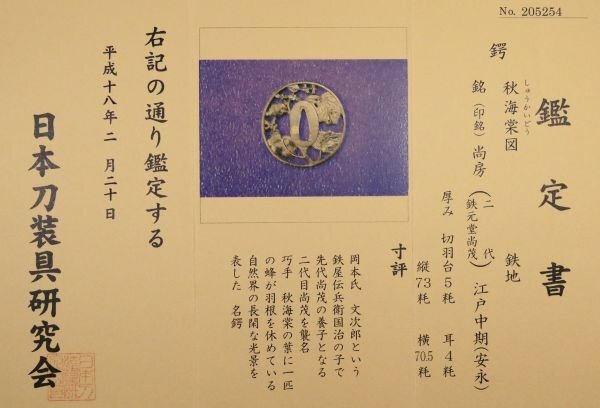 No. 205254
鑑定書
鍔
しゅうかいどう
秋海棠図 鉄地
銘(印銘)尚房(二代 鉄元堂尚茂)江戸中期(安永)
厚み 切羽台5粍 耳4粍
縦73粍 横70.5粍
寸評
岡本氏 文次郎という
鉄屋伝兵衛国治の子で
先代尚茂の養子となる
二代目尚茂を襲名
巧手 秋海棠の葉に一匹
の蜂が羽根を休めている
自然界の長閑な光景を
表した 名鍔
右記の通り鑑定する
平成十八年二月二十日
日本刀装具研究会